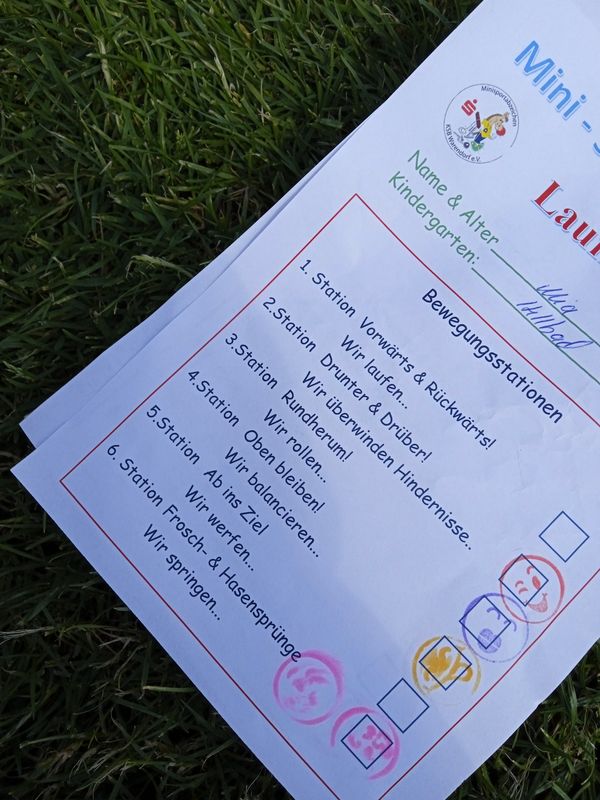 Mini -
Minisportabzeichen
KSB Warendorf e.V.
Name & Alter
Kindergarten:
Bewegungsstationen
1. Station Vorwärts & Rückwärts!
Wir laufen...
2.Station Drunter & Drüber!
Wir überwinden Hindernisse..
3.Station Rundherum!
Wir rollen...
4.Station Oben bleiben!
Wir balancieren...
5.Station Ab ins Ziel
Wir werfen...
6. Station Frosch- & Hasensprünge
Wir springen...